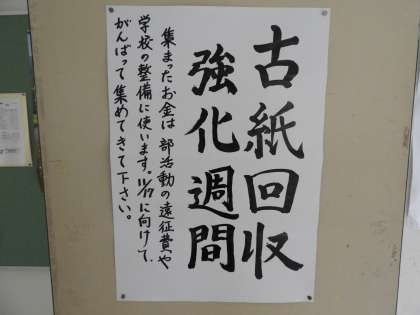 古紙回収
強化週間
集まったお金は部活動の遠征費や
学校の整備に使います。11/17に向けて、
がんばって集めてきて下さい。